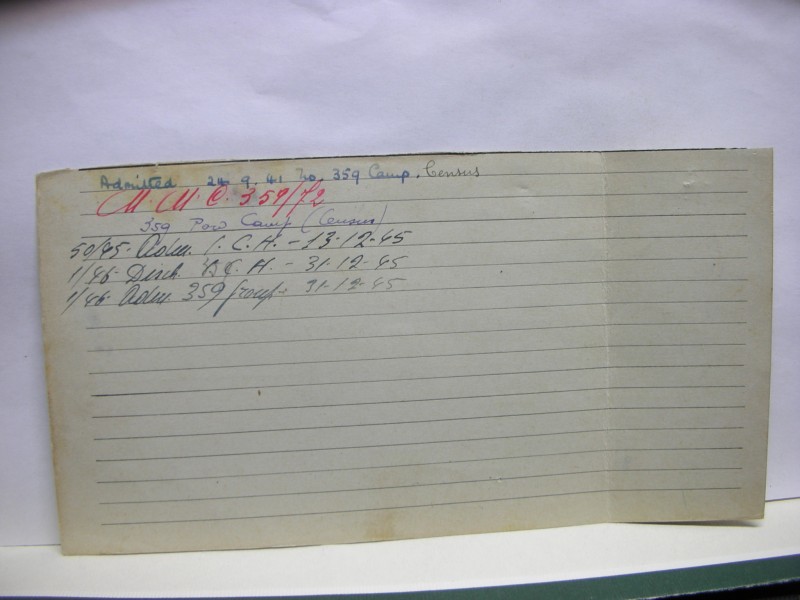 Admitted 24.9.41 No. 359 Camp. Census
M. M. C. 359/72
359 Pow Camp (Census)
50/45. Adm. I.C.H. - 13-12-45
1/46. Disch. C.H. - 31-12-45
1/46. Adm. 359 Group - 31-12-45